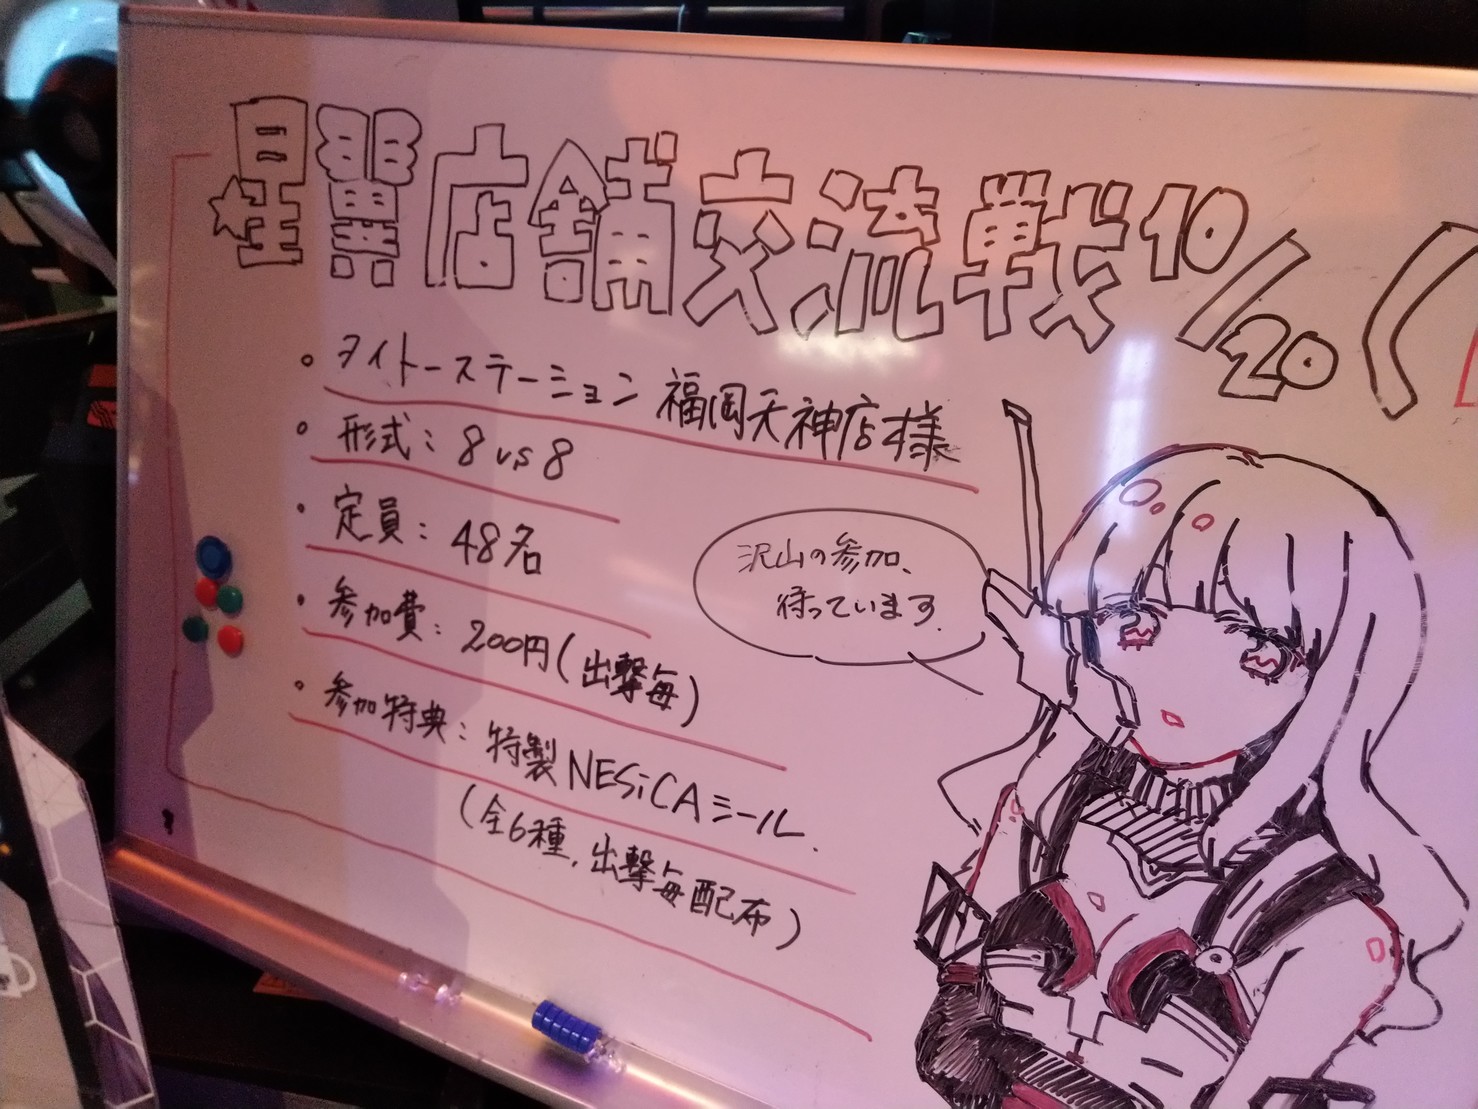 星翼店舗交流戦10/20(
・タイトーステーション 福岡天神店様
・形式：8vs8
・定員：48名
・参加費：200円(出撃毎)
・参加特典：特製NESiCAシール.
(全6種,出撃毎配布)
沢山の参加、
待っています.